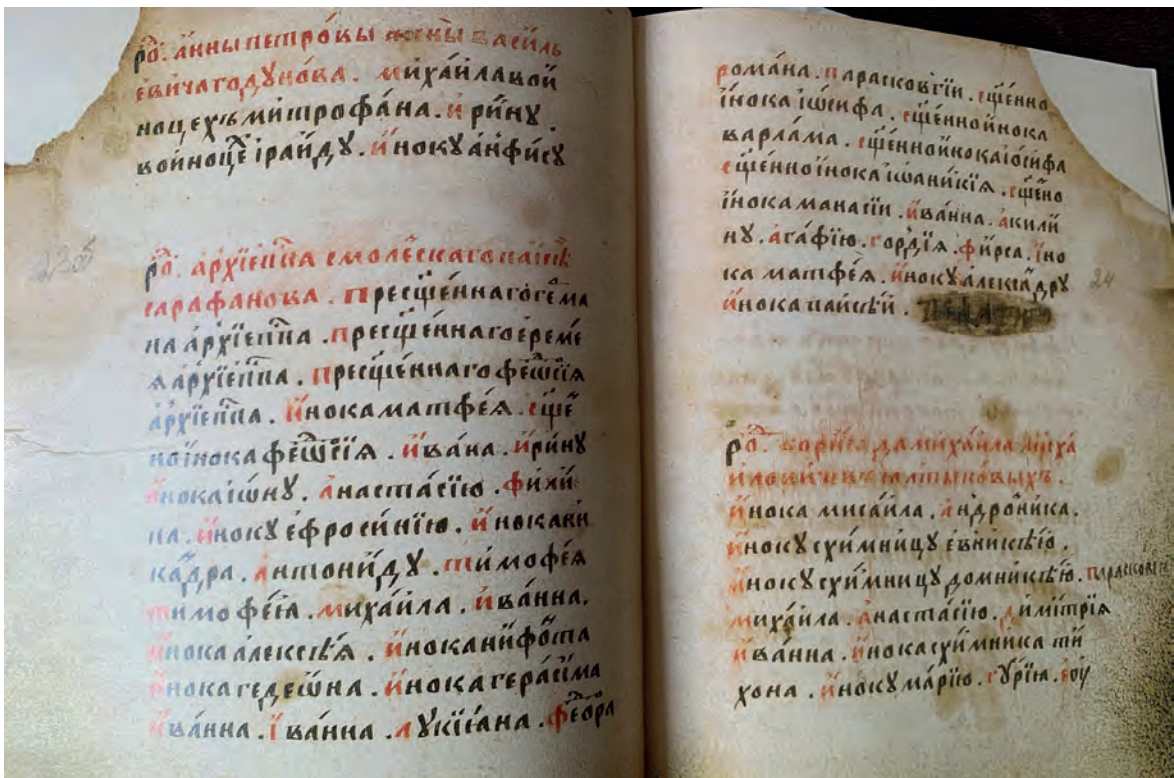 рѡ҃. а҆́нны петро́вы жены̀ васи́ль
евича годуно́ва. миха́ила вой
ноцехъ митрофа́на. и҆ри́нꙋ.
во и҆ноце҃ і҆раи́дꙋ. и҆́нокꙋ а҆нфи́сꙋ
рѡ҃. а҆рхїепⷭ҇па смоле́скаго
сарафанова. пресще́ннаго ге҆ⷬ҇ма
на а҆рхїепⷭ҇па. пресще́ннаго ереме́
я а҆рхїепⷭ҇па. пресще́ннаго феѡⷣ҇сїя
а҆рхїепⷭ҇па. и҆́нока матфе́я. сще́
ноі҆нока феѡⷣ҇сїя. и҆ва́на. и҆ри́нꙋ
и҆нока і҆ѡ́нꙋ. а҆наста́сїю. фили́
па. и҆́нокꙋ є҆фроси́нїю. и҆́нока ни
ка́дра. а҆нтони́дꙋ. тимофе́я
тимофе́я. миха́ила. и҆ва́нна.
и҆нока а҆леѯѣ́я. и҆́нока нифо́та
и҆нока гедеѡ́на. и҆́нока гера́сїма
и҆ва́нна. і҆ва́нна. лꙋкїа́на. фео́ра
23об
рома́на. параскові́и. сще́нно
і҆́нока і҆ѡ́сифа. сще́нно и҆́нока
варла́ма. сще́нно и҆́нока і҆о́сифа
сще́нно і҆́нока і҆ѡани́кїя. сще́но
і҆́нока мана́сїи. и҆ва́нна. а҆кили́
нꙋ. а҆га́фїю. го́рдїя. фи́рса. і҆но
ка матфе́я. и҆́нокꙋ а҆леѯа́дрꙋ
и҆́нока паисѣ́и.
24
рѡ҃. бори́са да миха́ила миха́
иловичевъ салтыковыхъ.
и҆́нока миса́ила. а҆ндро́ника.
и҆́нокꙋ схи́мницꙋ е҆вникѣ́ю.
и҆́нокꙋ схи́мницꙋ домникѣ́ю. параскове
миха́ила. а҆наста́сїю. дими́трїя
и҆ва́нна. и҆́нока схи́мника ти́
хона. и҆́нокꙋ ма́рїю. гꙋ́рїю. є҆ѵ